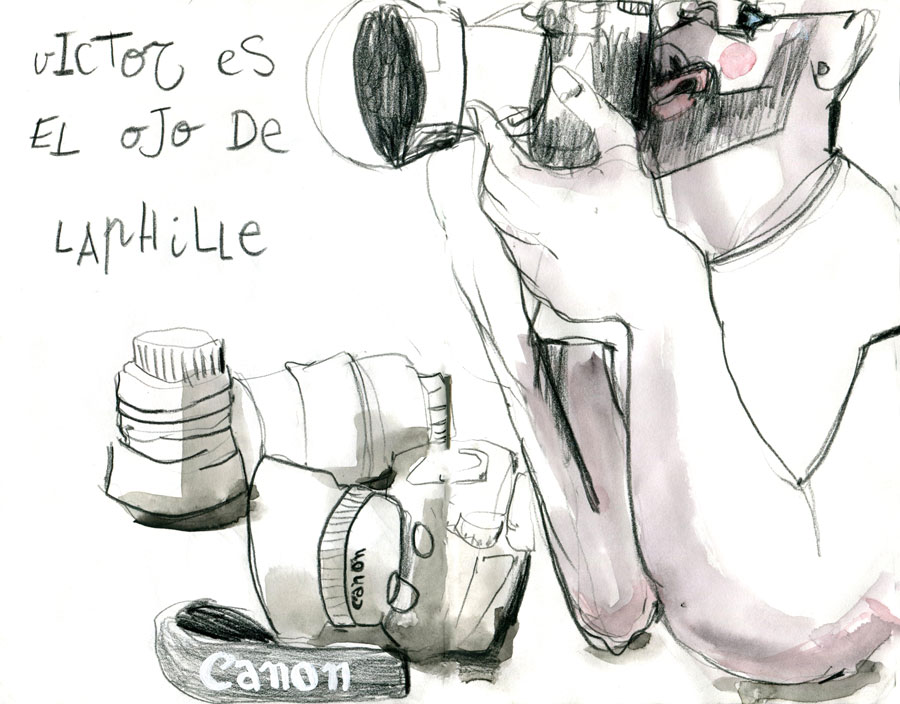 VICTOR ES
EL OJO DE
LAPHILLE
canon
canon